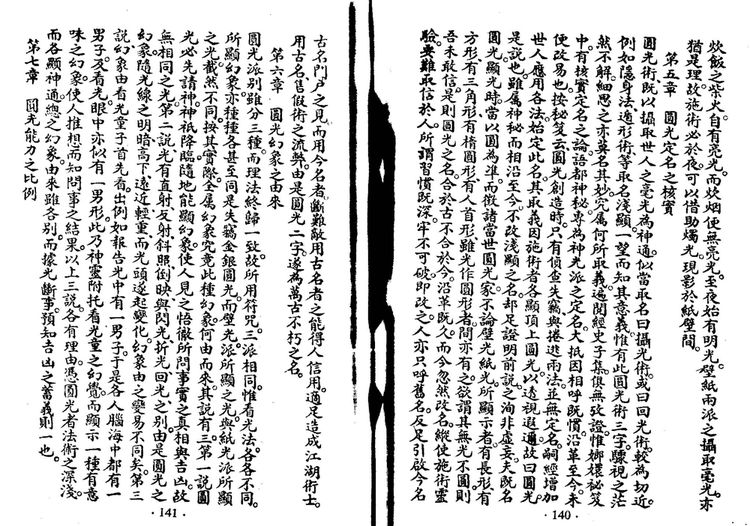 炊飯之柴火自有亮光而炊烟便無亮光至夜始有明光。壁紙兩派之攝取毫光亦
猶是理故施術必於夜可以借助燭光現影於紙壁間。
第五章　圓光定名之核實
圓光術既以攝取世人之毫光為神通似當取名曰攝光術或曰回光術較為切近
例如隱身法遁形術等取名淺顯一望而知其意義惟有此圓光術三字驟視之茫
然不解細思之亦莫名其妙究屬何所取義遍閱經史子集俱無攷證惟嫏嬛秘笈
中有核實定名之論語都神秘專為神光派之定名大抵因相呼既慣沿革至今未
便改易也按秘笈云圓光創造時只有偵查失竊與捲逃兩法並無定名嗣經增加
世人應用各法始定此名其取義因施術者各顯頂上圓光以透視遐邇故曰圓光
是說也雖屬神秘而相沿至今不改淺顯之名却足證明前說之洵非虛妄夫既名
圓光顯光時當以圓為準而徵諸當世圓光家不論壁光紙光所顯示者有長形有
方形有三角形有橢圓形有人首形雖光作圓形者間亦有之欲謂其無光不圓則
吾未敢信是則圓光之名合於古不合於今沿革既久而今忽然改名縱使施術靈
驗要難取信於人所謂習慣既深牢不可破即改之人亦只呼舊名反足引啟今名
·140·
古名門戶之見而用今名者斷難敵用古名者之能得人信用適足造成江湖術士。
用古名冒假術之流弊由是圓光二字遂為萬古不朽之名。
第六章　圓光幻象之由來
圓光派別雖分三種而理法終歸一致故所用符咒三派相同惟看光法各各不同。
所顯幻象亦種種各異甚至同是失竊金銀圓光而壁光派所顯之光與紙光派所顯
之光截然不同按其實際全屬幻象究竟此種幻象何由而來其說有三第一說圓
光必先請神神祇降臨隨地能顯幻象使人見之悟徹所問事實之真相與吉凶故
無相同之光第二說光有直射反射斜照倒映與閃光折光回光之別由是圓光之
幻象隨光線之明暗高下遠近輕重而光頭遂起變化幻象由之變易不同矣第三
說幻象由看光童子首先看出例如報告光中有一男子于是各人腦海中都有一
男子及看光眼中亦似有一男形此乃神靈附托看光童之幻覺而顯示一種有意
味之幻象使人推想而知問事之結果以上三說各有理由憑圓光者法術之深淺
而各顯神通總之幻象由來雖各別而據光斷事預知吉凶之蓄義則一也。
第七章　圓光能力之比例
·141·